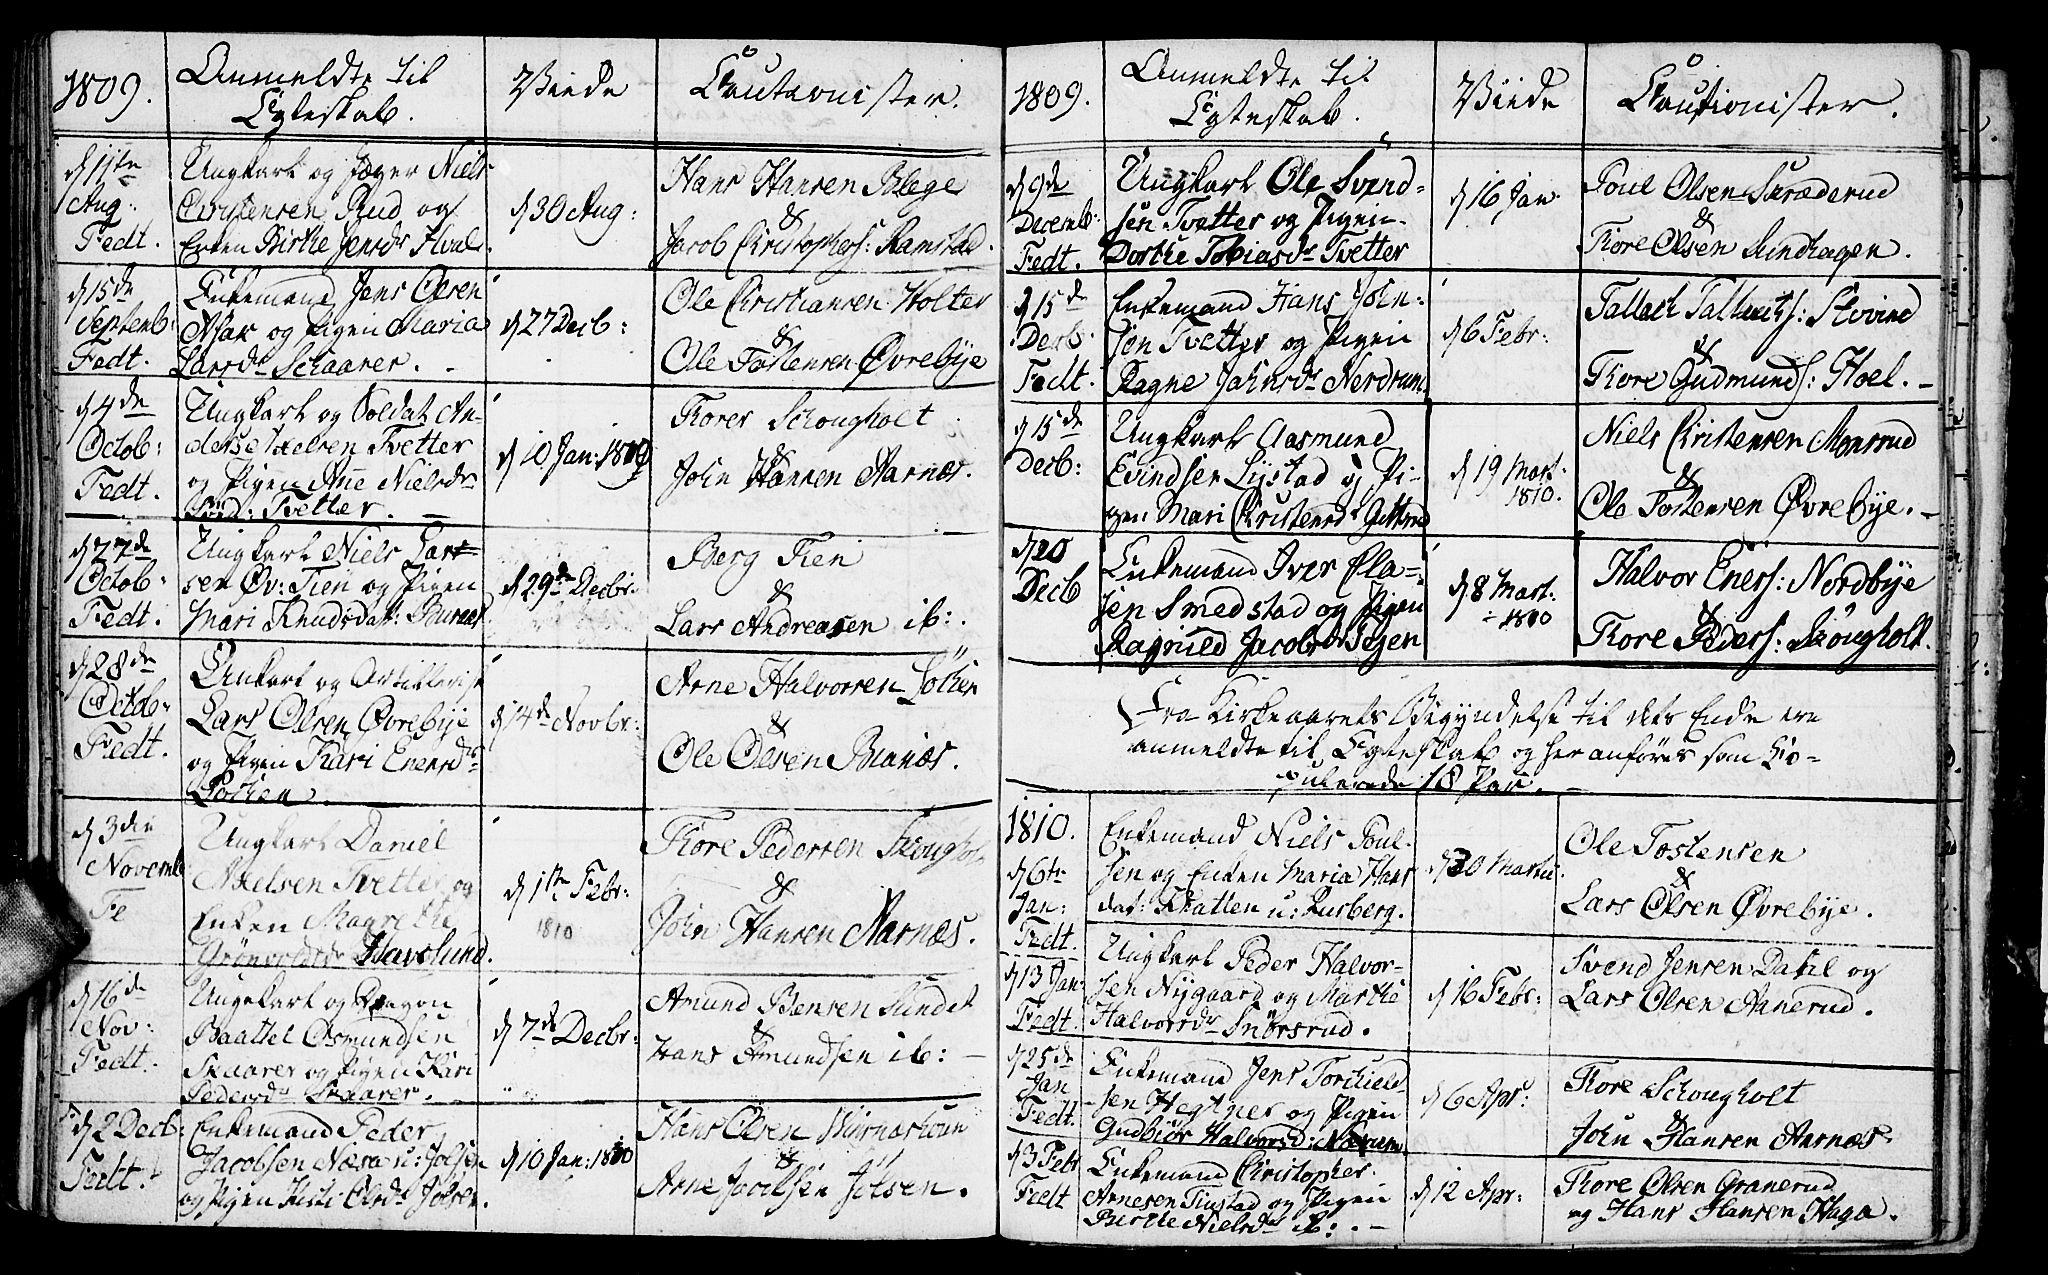 1809.
Anmeldte til
Egteskab.
Viede
Cautionister.
d 11te
Aug:
Fedt.
Ungkarl og Jæger Niels
Christensen Rud og
Enken Birthe Jensdr Hval.
d 30 Aug:
Hans Hansen Blege
&
Jacob Christophers: Ramstad.
d 15de
Septemb:
Fedt.
Enkemand Jens Olsen
Asak og Pigen Maria
Larsdr Schaarer.
d 27 Decb:
Ole Christiansen Holter
&
Ole Tostensen Øvrebye
d 4de
Octob:
Fedt.
Ungkarl og Soldat An-
ders Axelsen Tvetter
og Pigen Ane Nielsdr
Tvetter.
d 10 Jan: 1810
Thorer Schougholt
&
John Hansen Aarnæs.
d 27de
Octob:
Fedt.
Ungkarl Niels Lar-
sen Øv: Tien og Pigen
Mari Knudsdat:
d 29de Decbr.
Berg Tien
&
Lars Andreasen ib:
d 28de
Octob:
Fedt.
Unkarl og Artillerist
Lars Olsen Øvrebye
og Pigen Kari Enersdr
Løken.
d 14de Novbr:
Arne Halvorsen Løken
&
Ole Olsen Branæs.
d 3die
Novemb
Fe
Ungkarl Daniel
Axelsen Tvetter og
Enken Magrethe
Grønvoldsdr Havslund.
d 1te Febr:
1810
Thore Pedersen Skoughol
&
John Hansen Aarnæs.
d 16de
Nov:
Fedt.
Ungekarl og Dragon
Baattel Osmundsen
Skaarer og Pigen Kari
Pedersdr Skaarer.
d 7de Decbr:
Amund Bensen Sundet
&
Hans Amundsen ib:
d 2 Decb:
Fedt.
Enkemand Peder
Jacobsen Næss u: Jølsen
og Pigen Kisti Olsdr Jølsen.
d 10 Jan: 1810
Hans Olsen
&
Arne Jacobsen Jølsen.
1809.
Anmeldte til
Egteskab.
Viede
Cautionister.
d 9de
Decemb:
Fedt.
Ungkarl Ole Svend-
sen Tvetter og Pigen
Dorthe Tobiasdr Tvetter
d 16 Jan
Poul Olsen Skræderud
&
Thore Olsen Sundhagen.
d 15de
Decb:
Fedt.
Enkemand Hans John-
søn Tvetter og Pigen
Ragne Johnsdr Nerdrum
d 6 Febr:
Tallach Tallachs: Stovind
&
Thore Gudmunds: Hoel.
d 15de
Decb:
Ungkarl Aasmund
Evindsen Lystad og Pi-
gen Mari Christensd
d 19 Mart:
1810.
Niels Christensen Monsrud
&
Ole Tostensen Øvrebye.
d 20
Decb
Enkemand Iver Ola-
sen Smedstad og Pigen
Ragnild Jacobsdr Tejen
d 8 Mart:
1810
Halvor Eners: Nordbye
&
Thore Peders: Skougholt.
Fra Kirkeaarets Begyndelse til dets Ende ere
anmeldte til Egteskab og her anføres som Co-
pulerede 18 Par.
1810.
d 6te
Jan:
Fedt.
Enkemand Niels Poul-
sen og Enken Maria Hans
dat: Skatten u: Kusberg.
d 30 Martii
Ole Tostensen
&
Lars Olsen Øvrebye.
d 13 Jan:
Fedt.
Ungkarl Peder Halvor-
sen Nygaard og Marthe
Halvorsdr Snørsrud.
d 16 Febr:
Svend Jensen Dahl og
Lars Olsen Aanerud.
d 25de
Jan
Fedt.
Enkemand Jens Torchield-
sen Hegtner og Pigen
Gudbiør Halvorsd:
d 6 Apr:
Thore Schougholt
&
John Hansen Aarnæs
d 3 Feb
Fedt
Enkemand Christopher
Arnesen Tiustad og Pigen
Birthe Nielsdr ib:
d 12 Apr:
Thore Olsen Granerud
og Hans Hansen Haga.